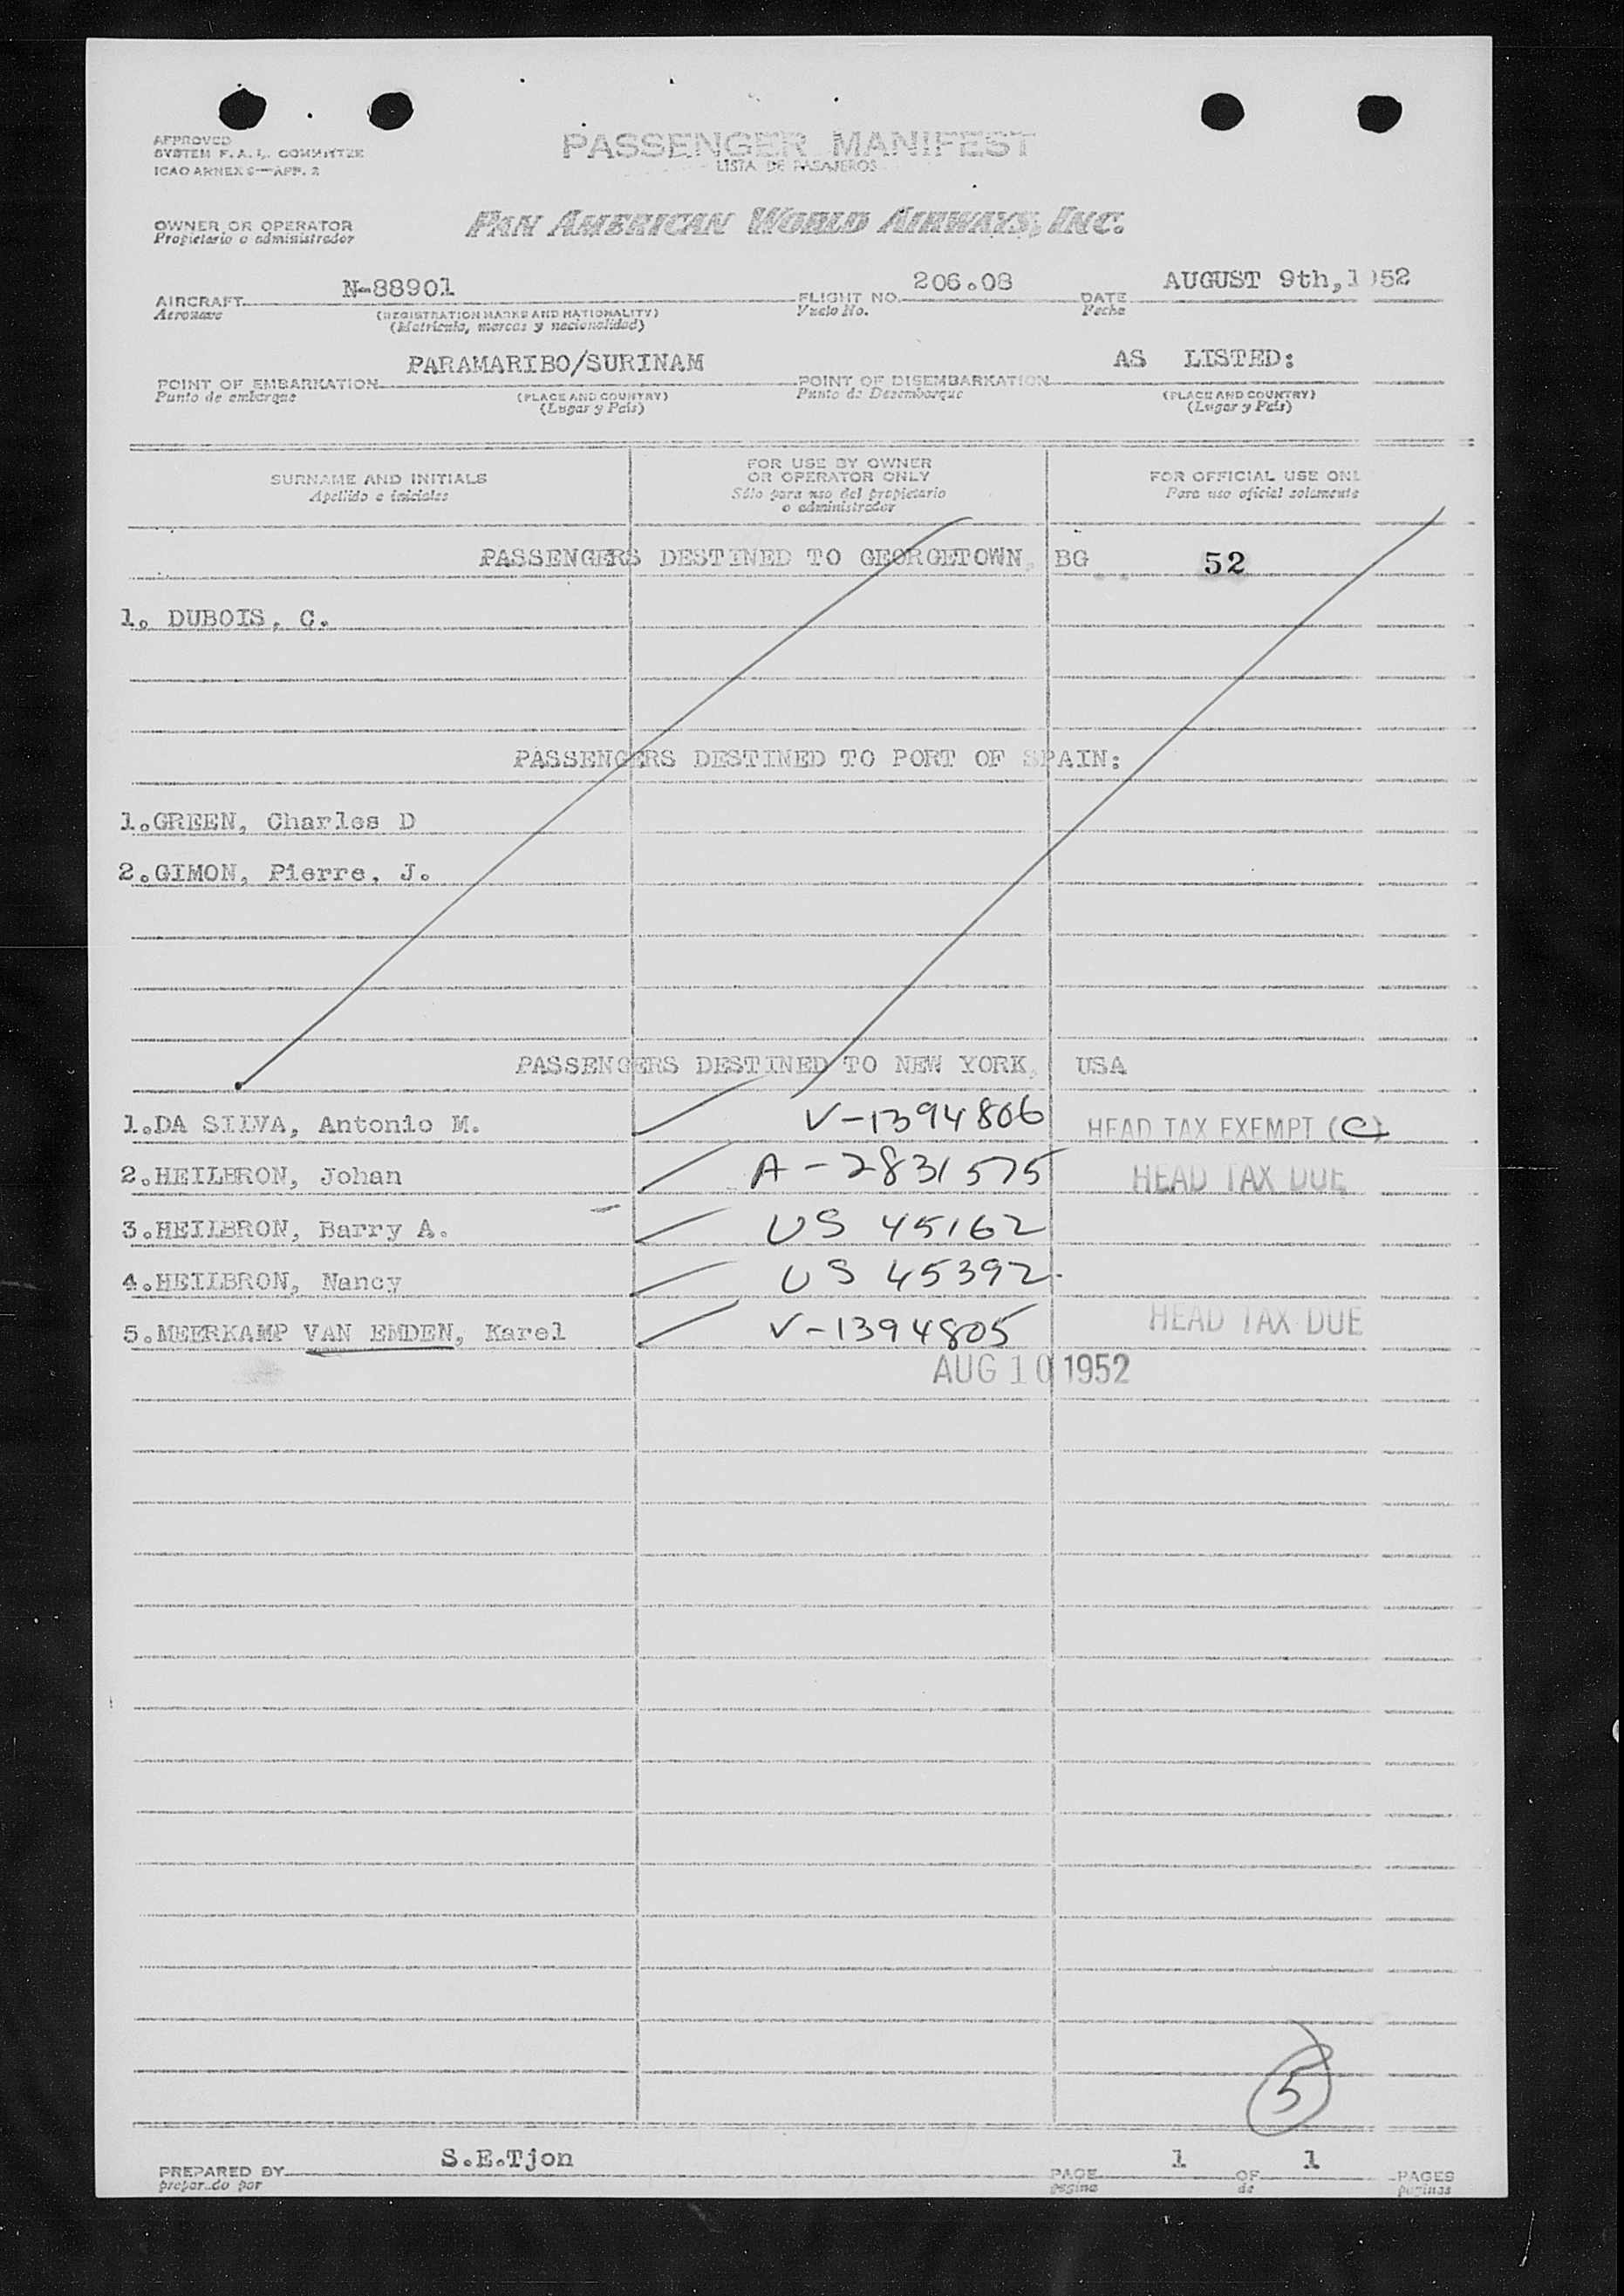 APPROVED
SYSTEM F. A. L. COMMITTEE
ICAO ANNEX 9—APP. 2
PASSENGER MANIFEST
LISTA DE PASAJEROS
OWNER OR OPERATOR
Propietario o administrador
PAN AMERICAN WORLD AIRWAYS, INC.
AIRCRAFT N-88901 FLIGHT NO. 206.08 DATE AUGUST 9th, 1952
Aeronave (REGISTRATION MARKS AND NATIONALITY) Vuelo No. Fecha
(Matrícula, marcas y nacionalidad)
POINT OF EMBARKATION PARAMARIBO/SURINAM POINT OF DISEMBARKATION AS LISTED:
Punto de embarque (PLACE AND COUNTRY) Punto de Desembarque (PLACE AND COUNTRY)
(Lugar y País) (Lugar y País)
SURNAME AND INITIALS
Apellido e iniciales
FOR USE BY OWNER
OR OPERATOR ONLY
Sólo para uso del propietario
o administrador
FOR OFFICIAL USE ONL
Para uso oficial solamente
PASSENGERS DESTINED TO GEORGETOWN, BG 52
1. DUBOIS, C.
PASSENGERS DESTINED TO PORT OF SPAIN:
1.GREEN, Charles D
2.GIMON, Pierre, J.
PASSENGERS DESTINED TO NEW YORK, USA
1.DA SILVA, Antonio M. V-1394806 HEAD TAX EXEMPT (C)
2.HEILBRON, Johan A-2831575 HEAD TAX DUE
3.HEILBRON, Barry A. US 45162
4.HEILBRON, Nancy US 45392.
5.MEERKAMP VAN EMDEN, Karel V-1394805 HEAD TAX DUE
AUG 10 1952
5
PREPARED BY S.E.Tjon PAGE 1 OF 1 PAGES
preparado por página de páginas